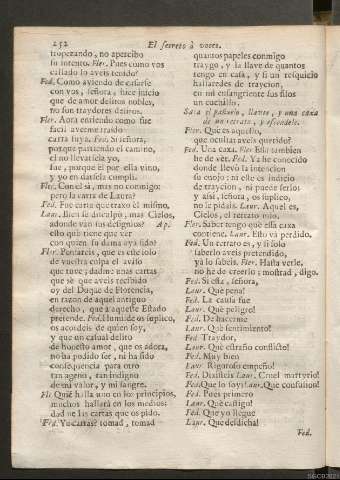 252
El secreto à voces.
tropezando, no apercibo
su intento. Fler. Pues como vos
callado lo aveis tenido?
Fed. Como aviendo de casarse
con vos, señora, hice juicio
que de amor delitos nobles,
no son traydores delitos.
Fler. Aora entiendo como fue
facil averme traido
carta suya. Fed. Si señora,
porque partiendo el camino,
el no llevarsela yo,
fue, porque él por ella vino,
y yo en darsela cumpli.
Fler. Con él si, mas no conmigo:
pero la carta de Laura?
Fed. Fue carta que traxo él mismo.
Laur. Bien se disculpò; mas Cielos,
adonde van sus designios? Ap.
ello què tiene que ver
con quien su dama aya sido?
Fler. Pensareis, que es este solo
de vuestra culpa el aviso
que tuve; dadme unas cartas
que sè que aveis recibido
oy del Duque de Florencia,
en razon de aquel antiguo
derecho, que à aqueste Estado
pretende. Fed. Humilde os suplico,
os acordeis de quien soy,
y que un casual delito
de honesto amor, que os adora,
no ha podido ser, ni ha sido
consequencia para otro
tan ageno, tan indigno
de mi valor, y mi sangre.
Fl. Quiè halla uno en los principios,
muchos hallarà en los medios:
dadme las cartas que os pido.
Fed. Yo cartas? tomad, tomad
quantos papeles conmigo
traygo, y la llave de quantos
tengo en casa, y si un resquicio
hallaredes de traycion,
en mi ensangriente sus filos
un cuchillo.
Saca el pañuelo, llaves, y una caxa
de un retrato, y escondele.
Fler. Què es aquesso,
que ocultar aveis querido?
Fed. Una caxa. Fler. Ella tambien
he de vèr. Fed. Ya he conocido
donde llevò la intencion
su enojo: ni este es indicio
de traycion, ni puede serlos
y assi, señora, os suplico,
no la pidais. Laur. Aquel es,
Cielos, el retrato mio.
Fler. Saber tengo què esta caxa
contiene. Laur. Esto va perdido.
Fed. Un retrato es, y si solo
saberlo aveis pretendido,
ya lo sabeis. Fler. Hasta verle,
no he de creerlo; mostrad, digo.
Fed. Si esta, señora,
Laur. Què pena!
Fed. La causa fue
Laur. Què peligro!
Fed. De hacerme
Laur. Què sentimiento!
Fed. Traydor,
Laur. Què estraño conflicto!
Fed. Muy bien
Laur. Rigoroso empeño!
Fed. Dixisteis Laur. Cruel martyrio!
Fed. Que lo soy: Laur. Que confusion!
Fed. Pues primero
Laur. Què castigo!
Fed. Que yo llegue
Laur. Què desdicha!
Fed.
SGCB202